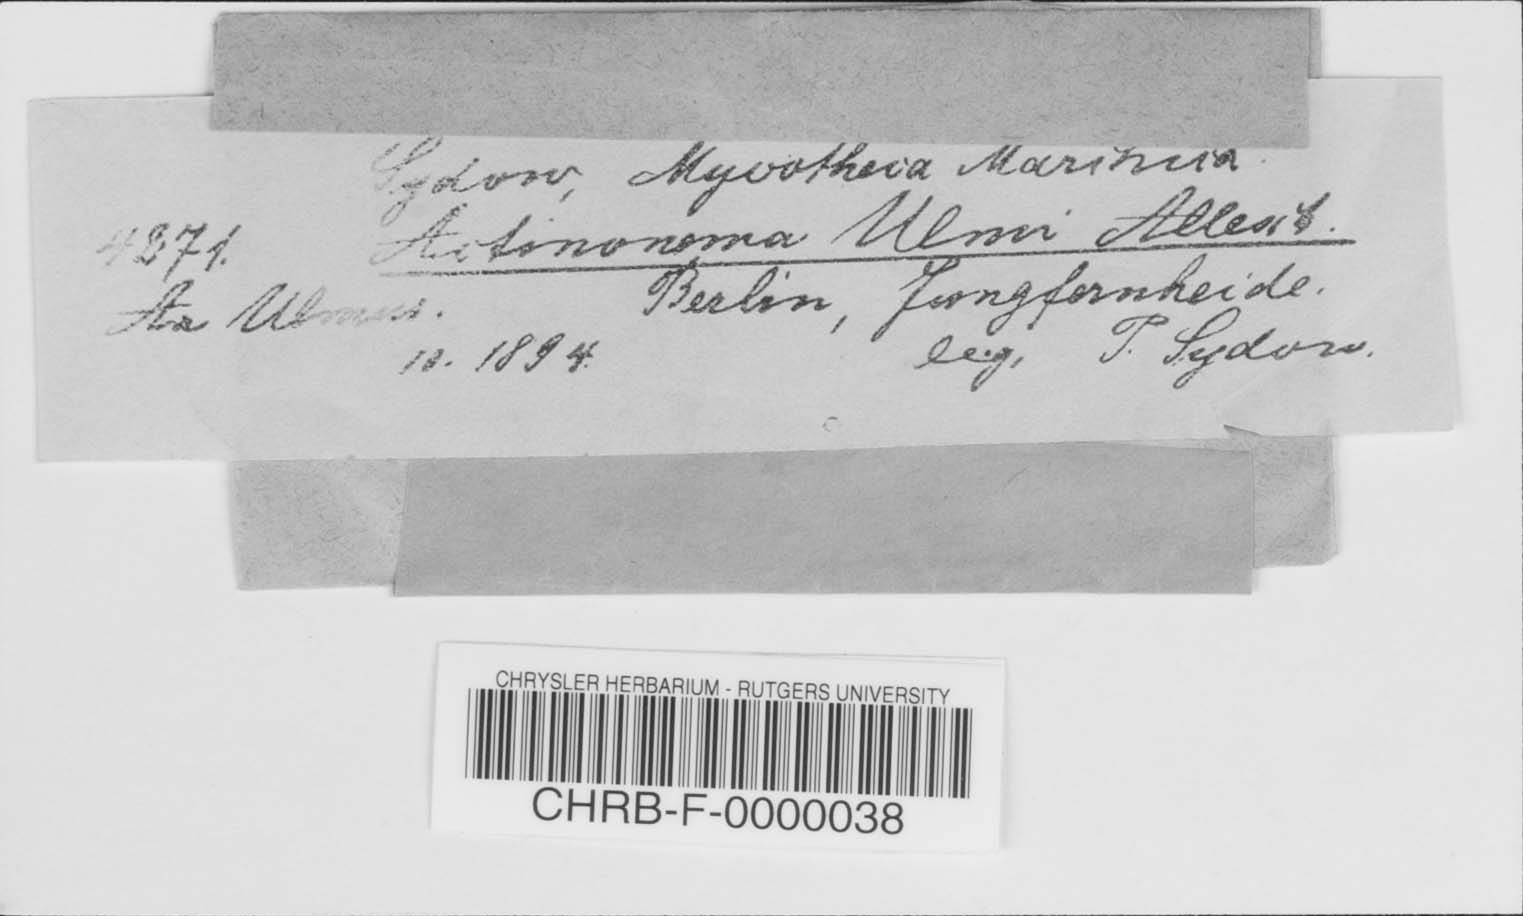 Sydow, Mycotheca Marchica.
4271. Actinonema Ulmi Allesch.
An Ulmus. Berlin, Jungfernheide.
10. 1894. leg. P. Sydow.
CHRYSLER HERBARIUM - RUTGERS UNIVERSITY
CHRB-F-0000038